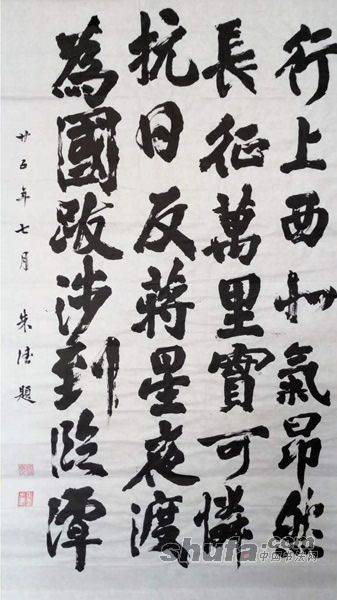 行上西北氣昂然
長征萬里實可憐
抗日反蔣星夜渡
為國跋涉到臨潭
廿五年七月 朱德題
shufa.com
中国书法网